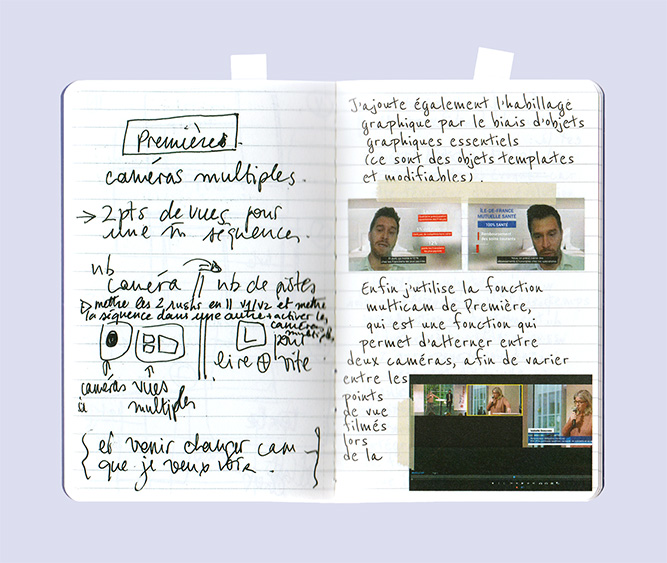 Premières
caméras multiples.
→ 2 pts de vues pour
une m séquence.
nb
caméra
nb de pistes
mettre les 2 rushs en || V1/V2 et mettre
la séquence dans une autre + activer les
caméras
multiples
pour
lire ⊕ vite
caméras
ici
vues
multiples
{ et venir changer cam
que je veux voir. }
J'ajoute également l'habillage
graphique par le biais d'objets
graphiques essentiels
(ce sont des objets templates
et modifiables).
ÎLE-DE-FRANCE
MUTUELLE SANTÉ
100% SANTÉ
Enfin j'utilise la fonction
multicam de Première,
qui est une fonction qui
permet d'alterner entre
deux caméras, afin de varier
entre les
points
de vue
filmés
lors
de la